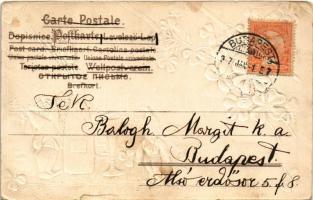 Carte Postale.
Dopisnice. Postkarte. Levelező-Lap
Post card. Briefkaart. Cartolina postale.
Tarjetas postale. Weltpost-verein.
ОТКРЫТОЕ ПИСЬМО.
Brefkort.
BUDAPEST
Balogh Margit k. a.
Budapest.
Alsó erdősor 5. f. 8.